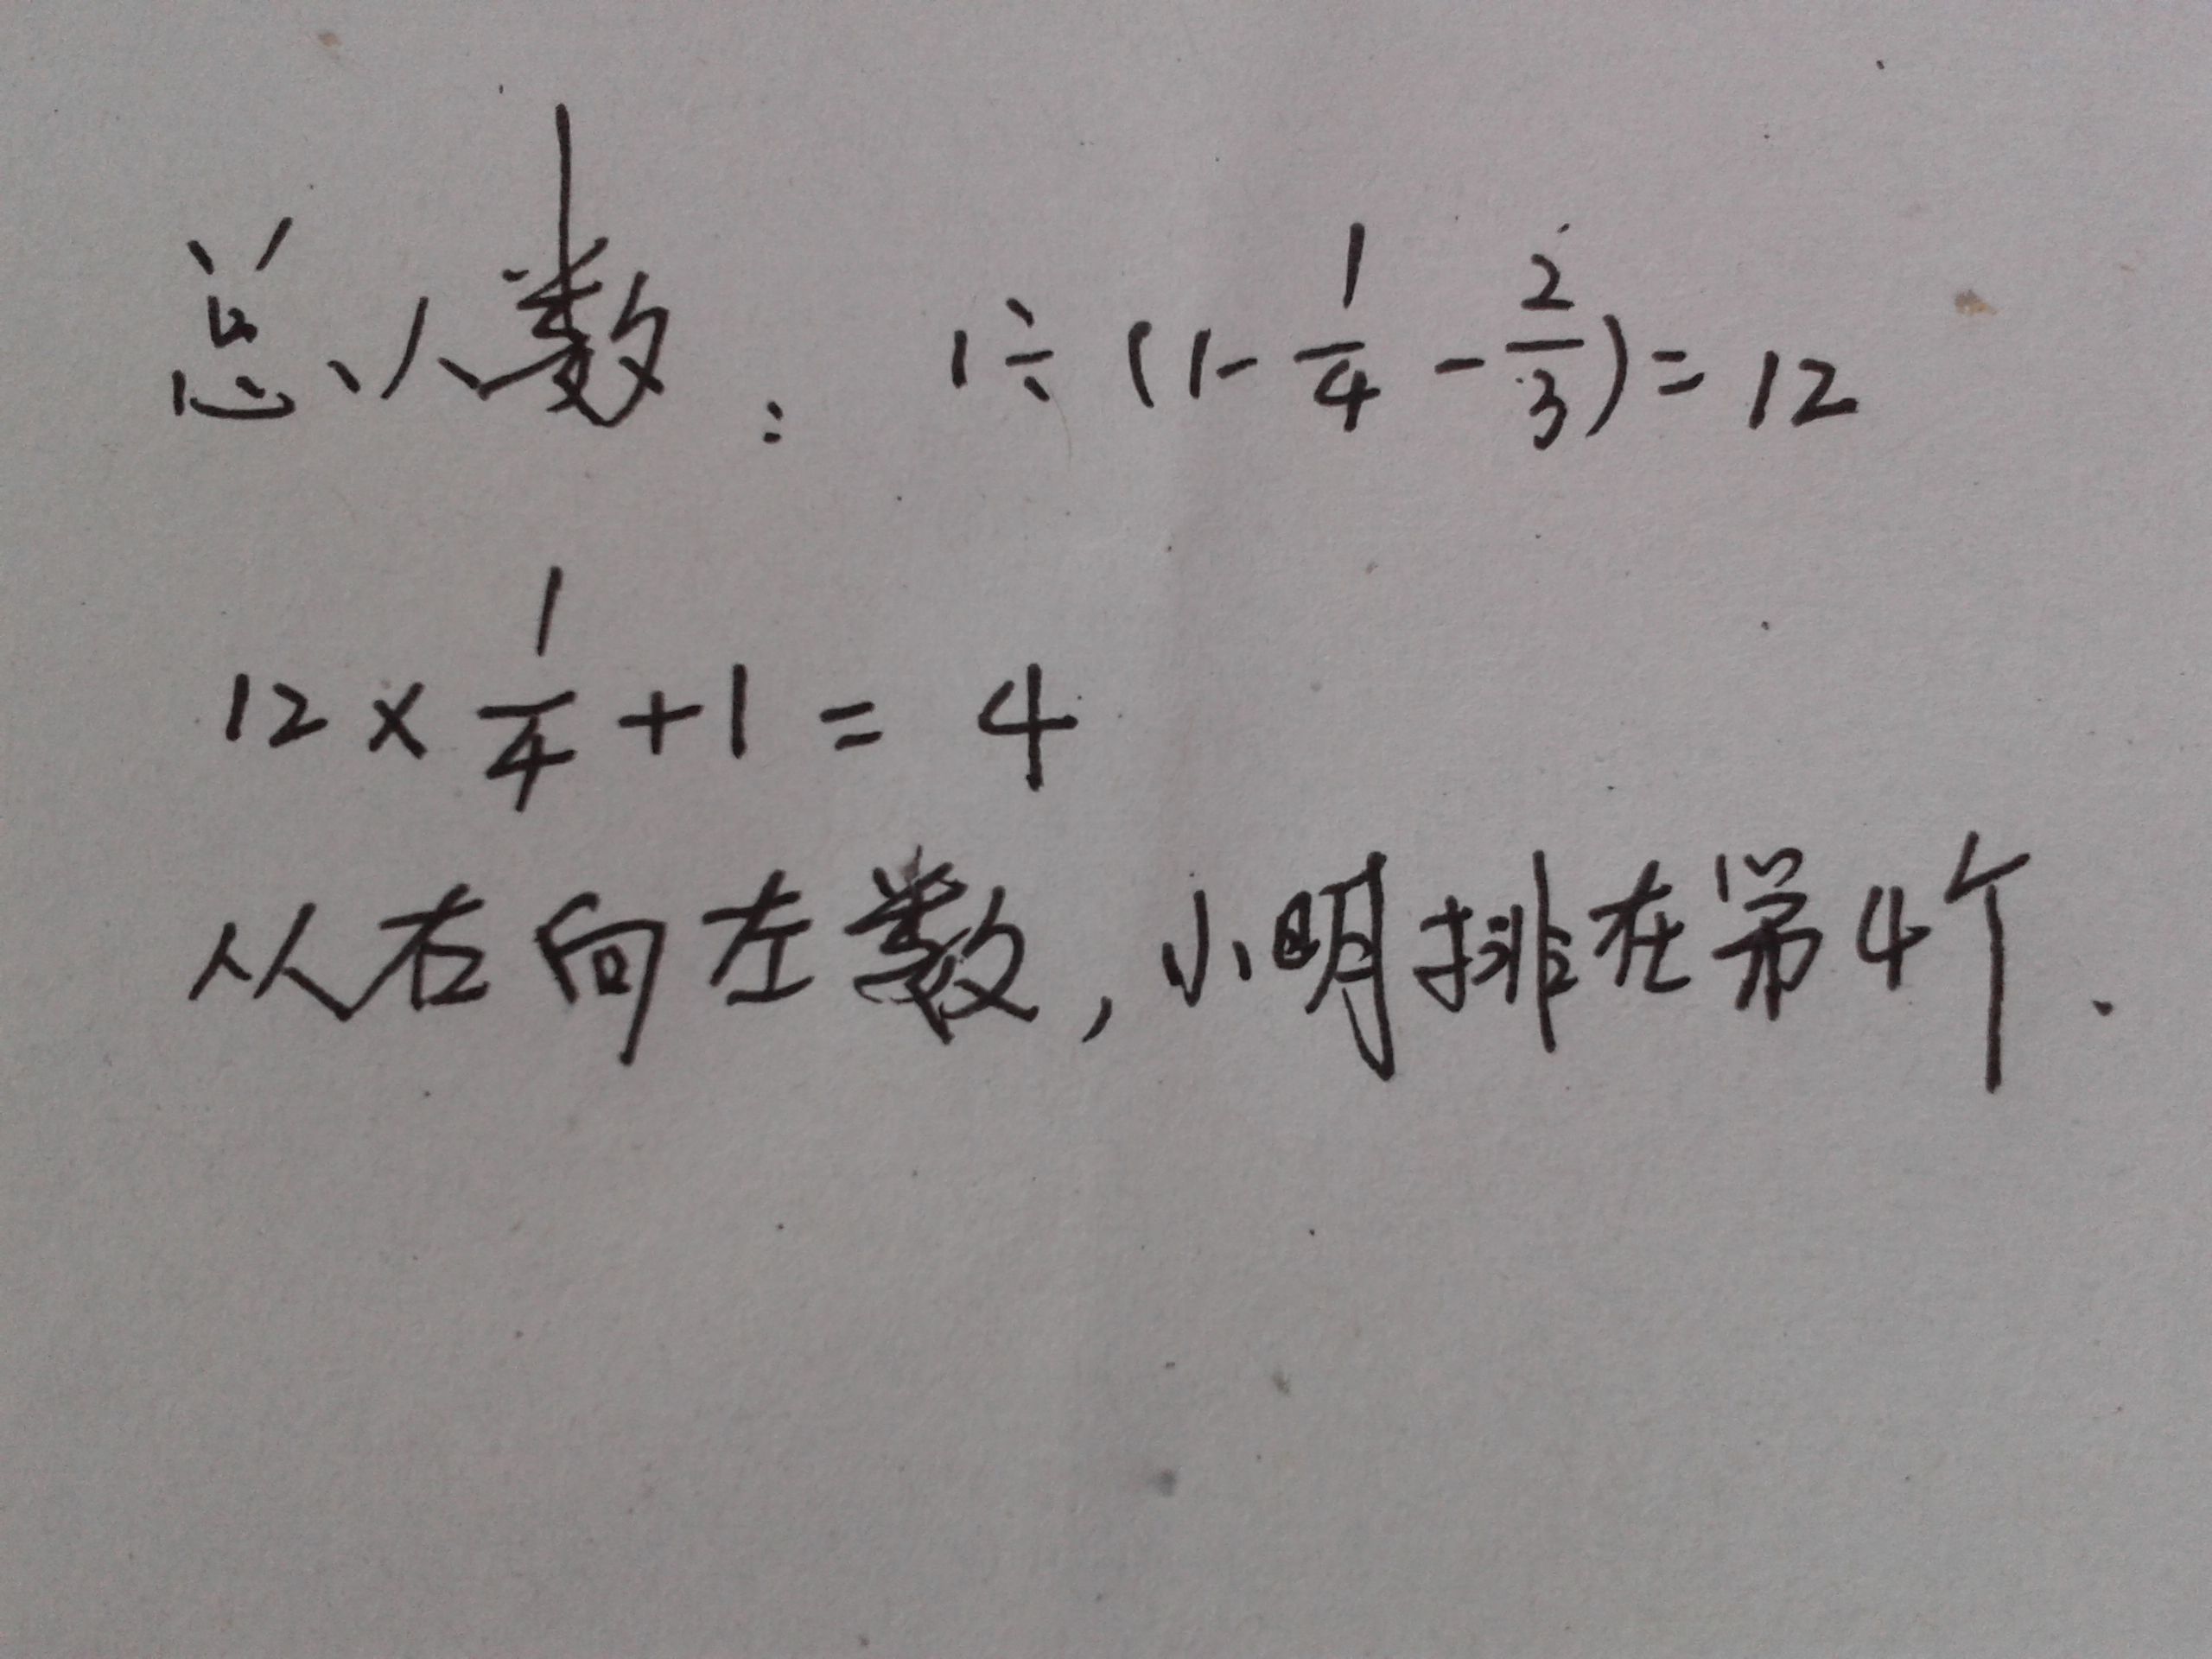 总人数: 1÷(1-1/4-2/3)=12
12×1/4+1=4
从右向左数,小明排在第4个.